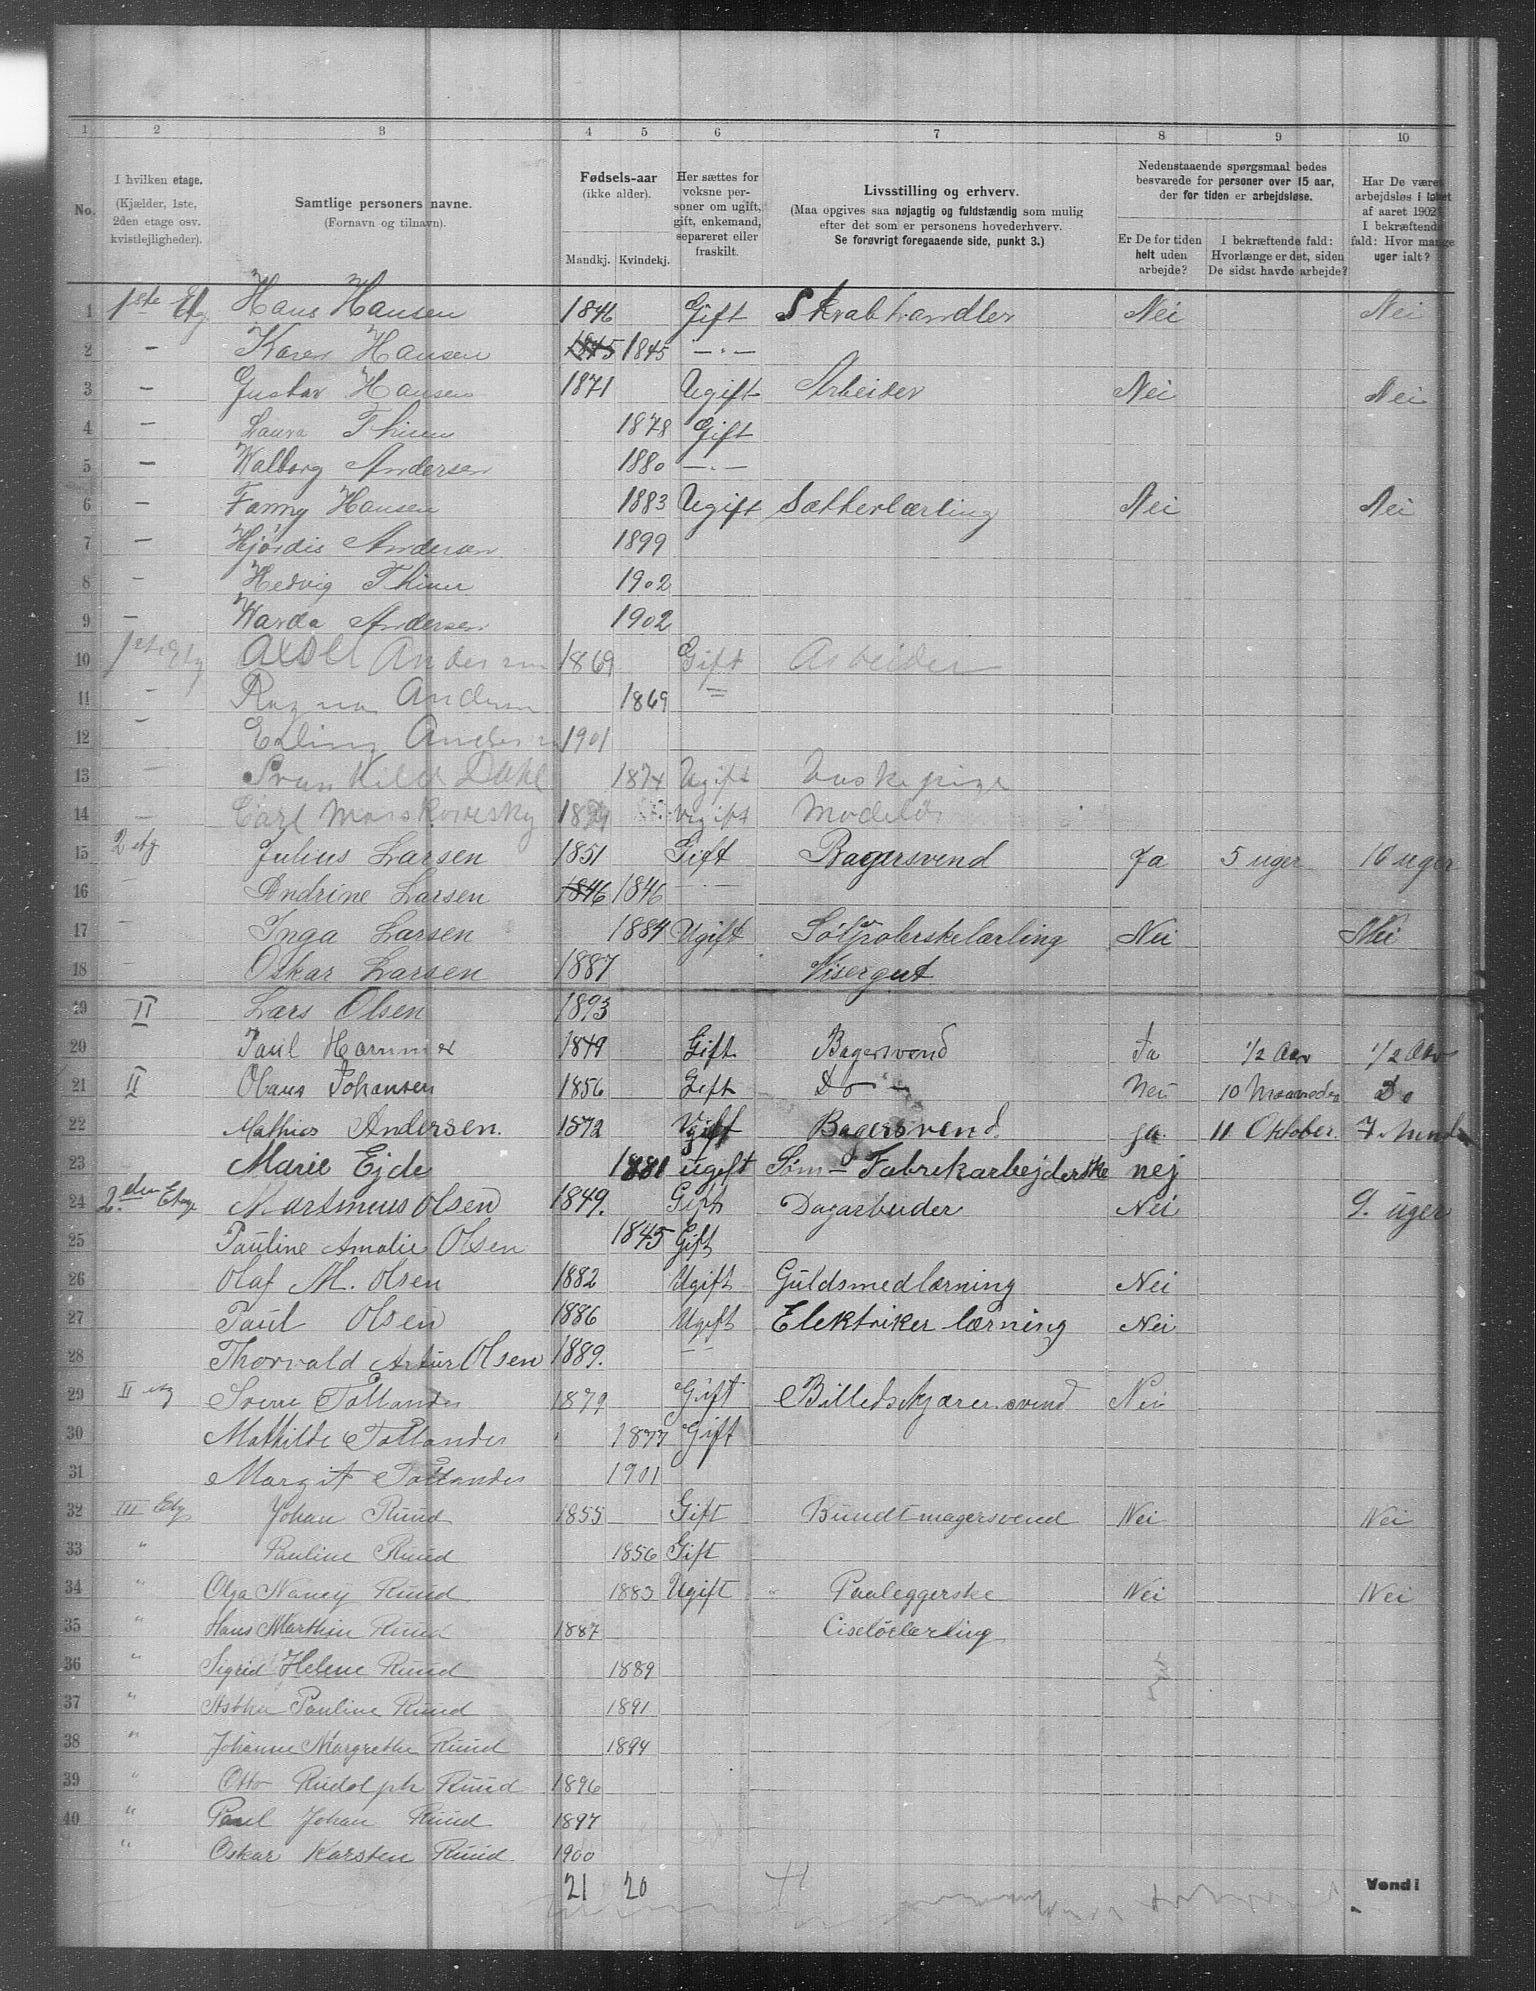 1 2 3 4 5 6 7 8 9 10
No.
I hvilken etage.
(Kjælder, 1ste,
2den etage osv.
kvistlejligheder).
Samtlige personers navne.
(Fornavn og tilnavn).
Fødsels-aar
(ikke alder).
Mandkj. Kvindekj.
Her sættes for
voksne per-
soner om ugift,
gift, enkemand,
separeret eller
fraskilt.
Livsstilling og erhverv.
(Maa opgives saa nøjagtig og fuldstændig som mulig
efter det som er personens hovederhverv.
Se forøvrigt foregaaende side, punkt 3.)
Nedenstaaende spørgsmaal bedes
besvarede for personer over 15 aar,
der for tiden er arbejdsløse.
Er De for tiden
helt uden
arbejde?
I bekræftende fald:
Hvorlænge er det, siden
De sidst havde arbejde?
Har De været
arbejdsløs i løbet
af aaret 1902?
I bekræftende
fald: Hvor mange
uger ialt?
1 1ste Etg Hans Hansen 1846 Gift Skrabhandler Nei Nei
2 — Karen Hansen 1845 1845 —·—
3 — Gustav Hansen 1871 Ugift Arbeider Nei Nei
4 — Laura 1878 Gift
5 — Walborg Andersen 1880 —·—
6 — Fanny Hansen 1883 Ugift Sætterlærling Nei Nei
7 — Hjørdis Andersen 1899
8 — Hedvig 1902
9 — Warda Andersen 1902
10 1ste Etg Axsel Andersen 1869 Gift Arbeider
11 — Ragna Andersen 1869 =
12 — Erling Andersen 1901
13 — Dahl 1874 Ugift Vaskepige
14 — Carl Ugift
15 2 Etg Julius Larsen 1851 Gift Bagersvend Ja 5 uger 10 uger
16 — Andrine Larsen 1846 1846 —·—
17 — Inga Larsen 1884 Ugift Sølvpolerskelærling Nei Nei
18 — Oskar Larsen 1887 Visergut
29 II Lars Olsen 1893
20 Paul Hammer 1849 Gift Bagersvend Ja 1/2 Aar 1/2 Aar
21 II Olaus Johansen 1856 Gift Do — Nei 10 Maaneder Do
22 Mathias Andersen. 1872 Ugift Bagersvend. ja. 11 Oktober.
23 Marie Ejde 1881 ugift Søm- Fabrikarbejderske nej
24 2.den Etag Martinius Olsen 1849. Gift Dagarbeider Nei 9. uger
25 Pauline Amalie Olsen 1845 Gift
26 Olaf M. Olsen 1882 Ugift Guldsmedlærning Nei
27 Paul Olsen 1886 Ugift Elektriker lærning Nei
28 Thorvald Artur Olsen 1889. — —
29 II etg Tollander 1879 Gift Billedskjærersvend Nei
30 Mathilde Tollander 1877 Gift
31 Margit Tollander 1901
32 III Etg Johan Ruud 1855 Gift Bundtmagersvend Nei Nei
33 " Pauline Ruud 1856 Gift
34 " Olga Nancy Ruud 1883 Ugift " Paaleggerske Nei Nei
35 " Hans Marthin Ruud 1887 Ciselørlærling
36 " Sigrid Helene Ruud 1889
37 " Pauline Ruud 1891
38 " Johanne Margrethe Ruud 1894
39 " Otto Rudolph Ruud 1896
40 " Paul Johan Ruud 1897
" Oskar Karsten Ruud 1900
21 20
Vend!